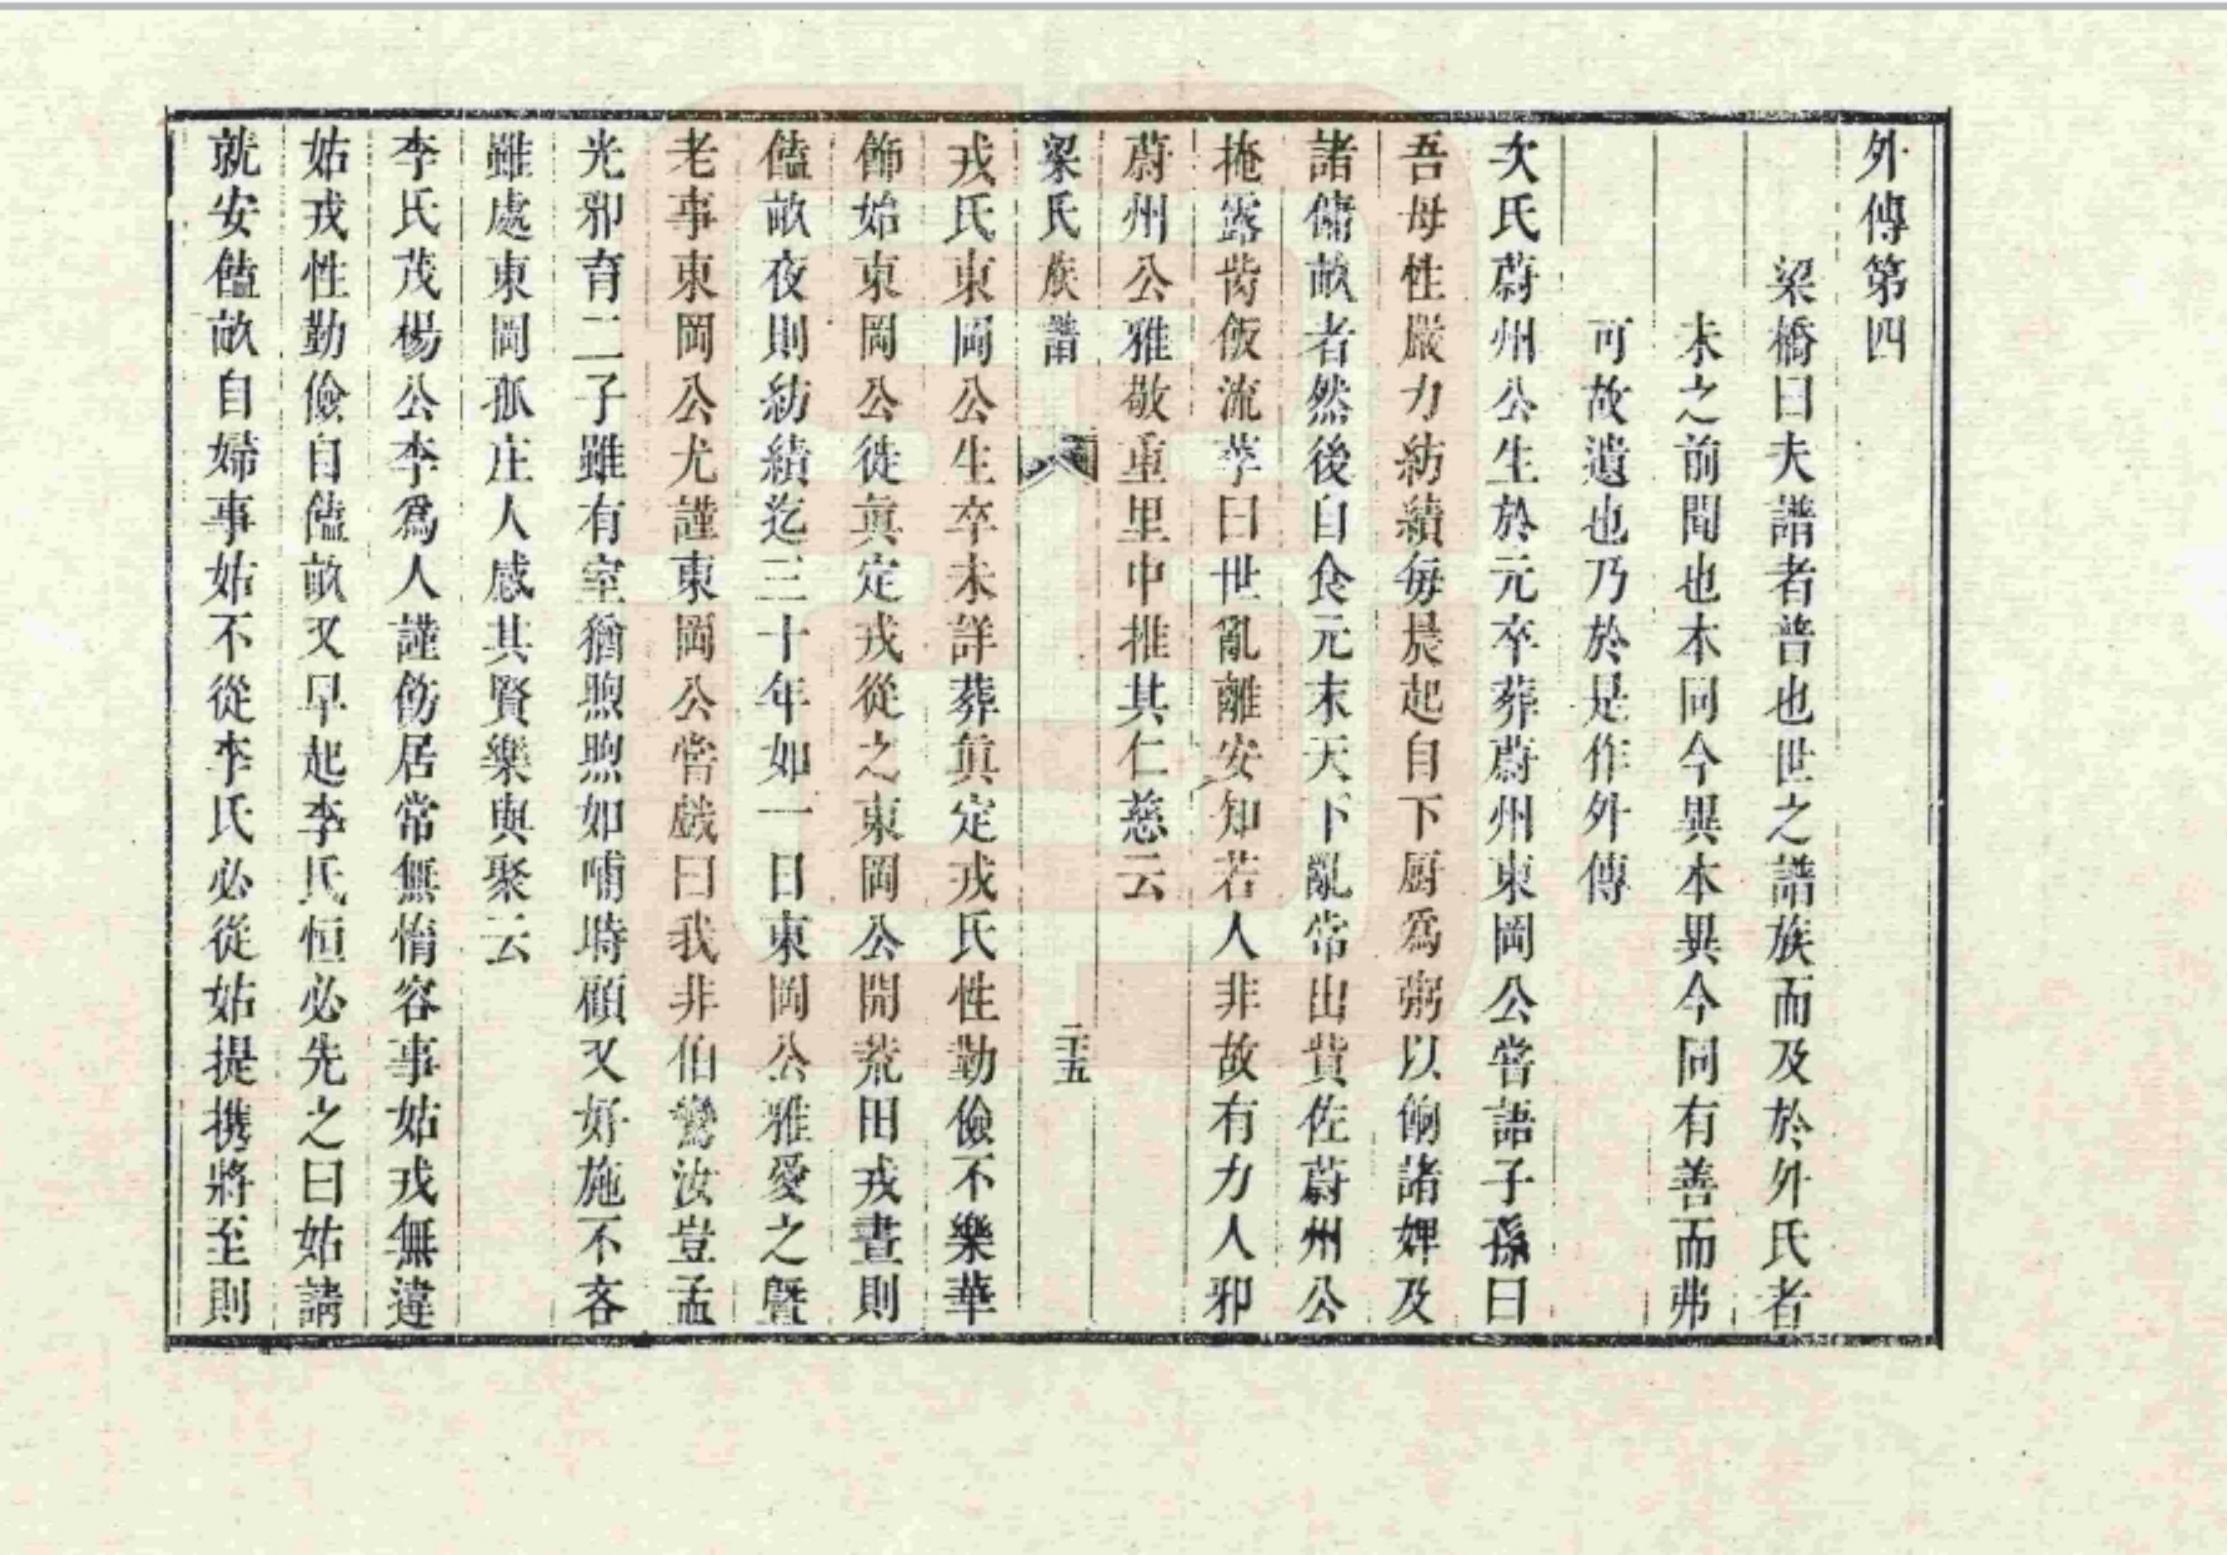 外傳第四
梁橋曰夫譜者普也世之譜族而及於外氏者
未之前聞也本同今異本異今同有善而弗
可故遺也乃於是作外傳
次氏蔚州公生於元卒葬蔚州東岡公嘗語子孫曰
吾母性嚴力紡績每晨起自下厨爲粥以餉諸婢及
諸傭畝者然後自食元末天下亂常出貲佐蔚州公
掩露胔飯流莩曰世亂離安知若人非故有力人邪
蔚州公雅敬重里中推其仁慈云
梁氏族譜
二十五
戎氏東岡公生卒未詳葬眞定戎氏性勤儉不樂華
飾始東岡公徙眞定戎從之東岡公開荒田戎晝則
饁畝夜則紡績迄三十年如一日東岡公雅愛之曁
老事東岡公尤謹東岡公嘗戲曰我非伯鸞汝豈孟
光邪育二子雖有室猶煦煦如哺時顧又好施不吝
雖處東岡孤庄人感其賢樂與聚云
李氏茂楊公李爲人謹飭居常無惰容事姑戎無違
姑戎性勤儉自饁畝又早起李氏恒必先之曰姑請
就安饁畝自婦事姑不從李氏必從姑提携將至則